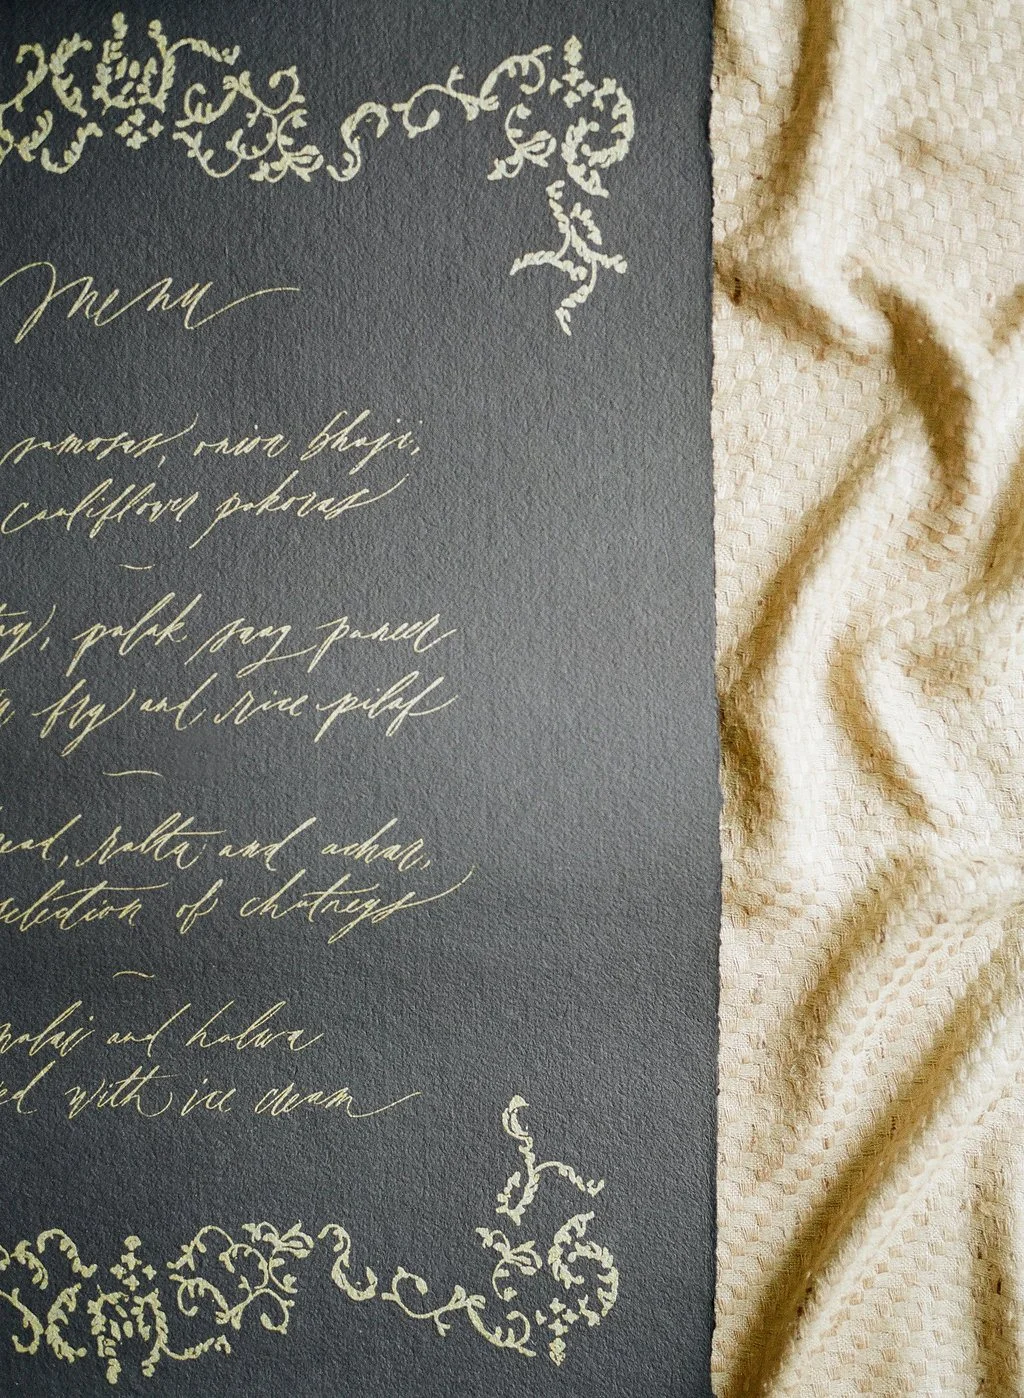 Menu
samosas, onion bhaji,
cauliflower pakoras
palak saag paneer
fry and rice pilaf
raita and achar,
selection of chutneys
malai and halwa
with ice cream